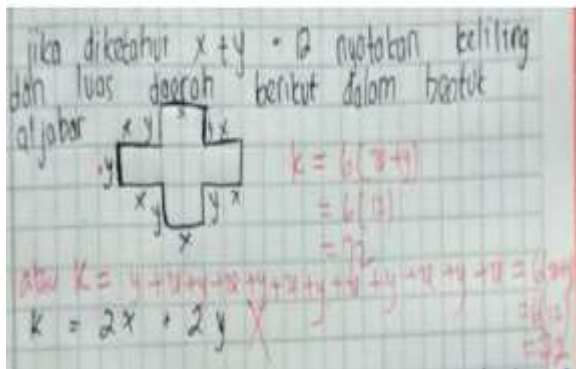 jika diketahui x + y = 12 nyatakan keliling
dan luas daerah berikut dalam bentuk
aljabar
x
x y y x
y
x y y x
x
k = 6(x+y)
= 6(12)
= 72
atau K = y+x+y+x+y+x+y+x+y+x+y+x = 6(x+y)
= 6(12)
= 72
k = 2x + 2y X